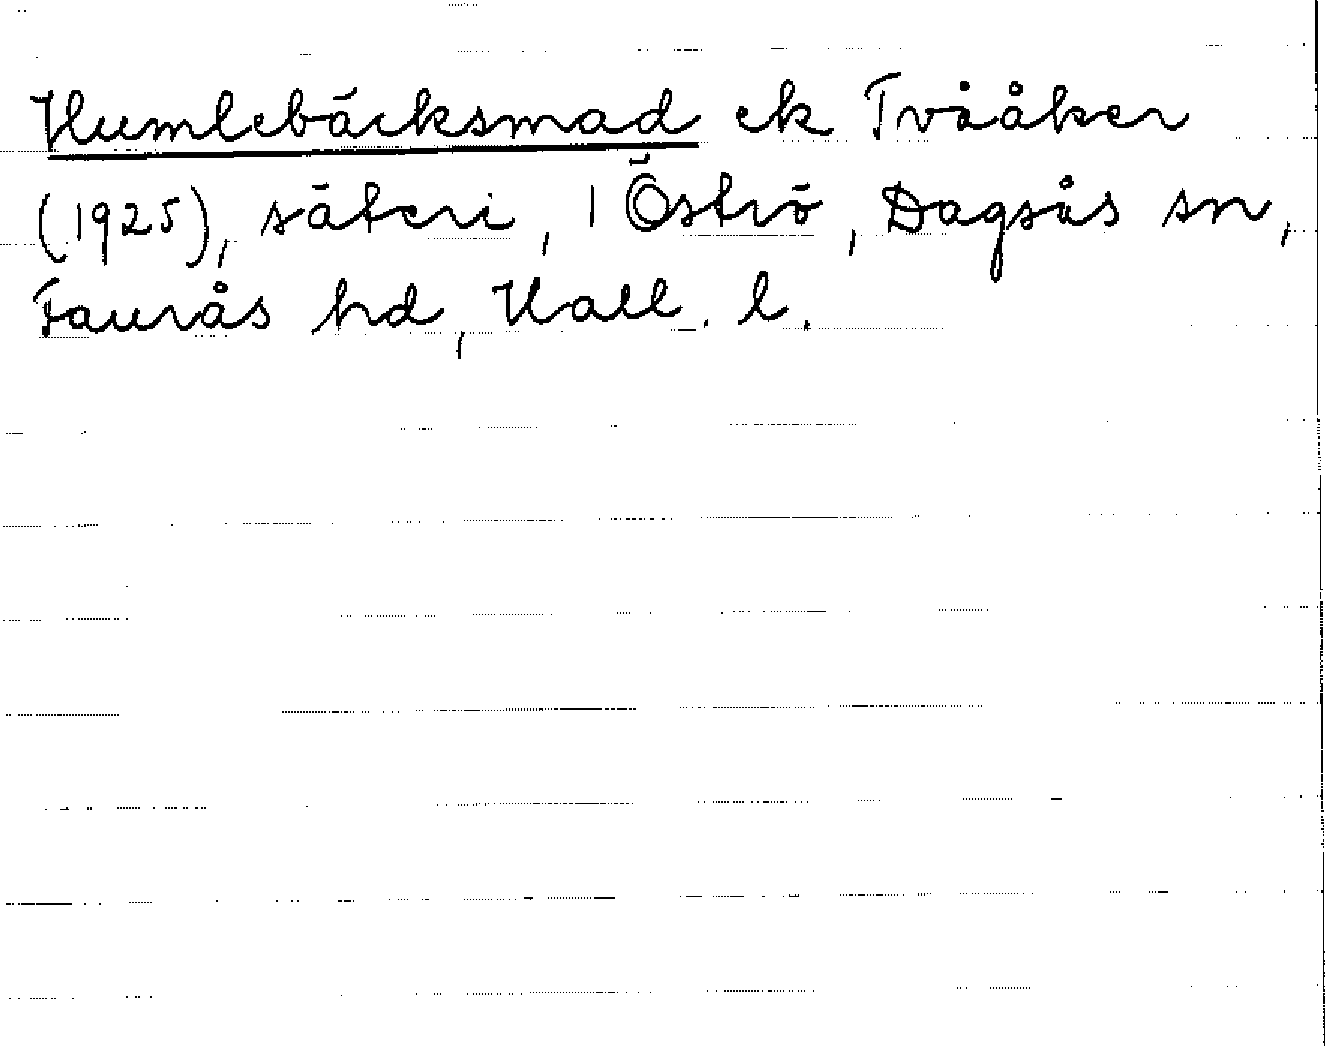 Humlebäcksmad ek Tvååker
(1925), säteri, 1 Öströ, Dagsås sn,
Faurås hd, Hall. l.